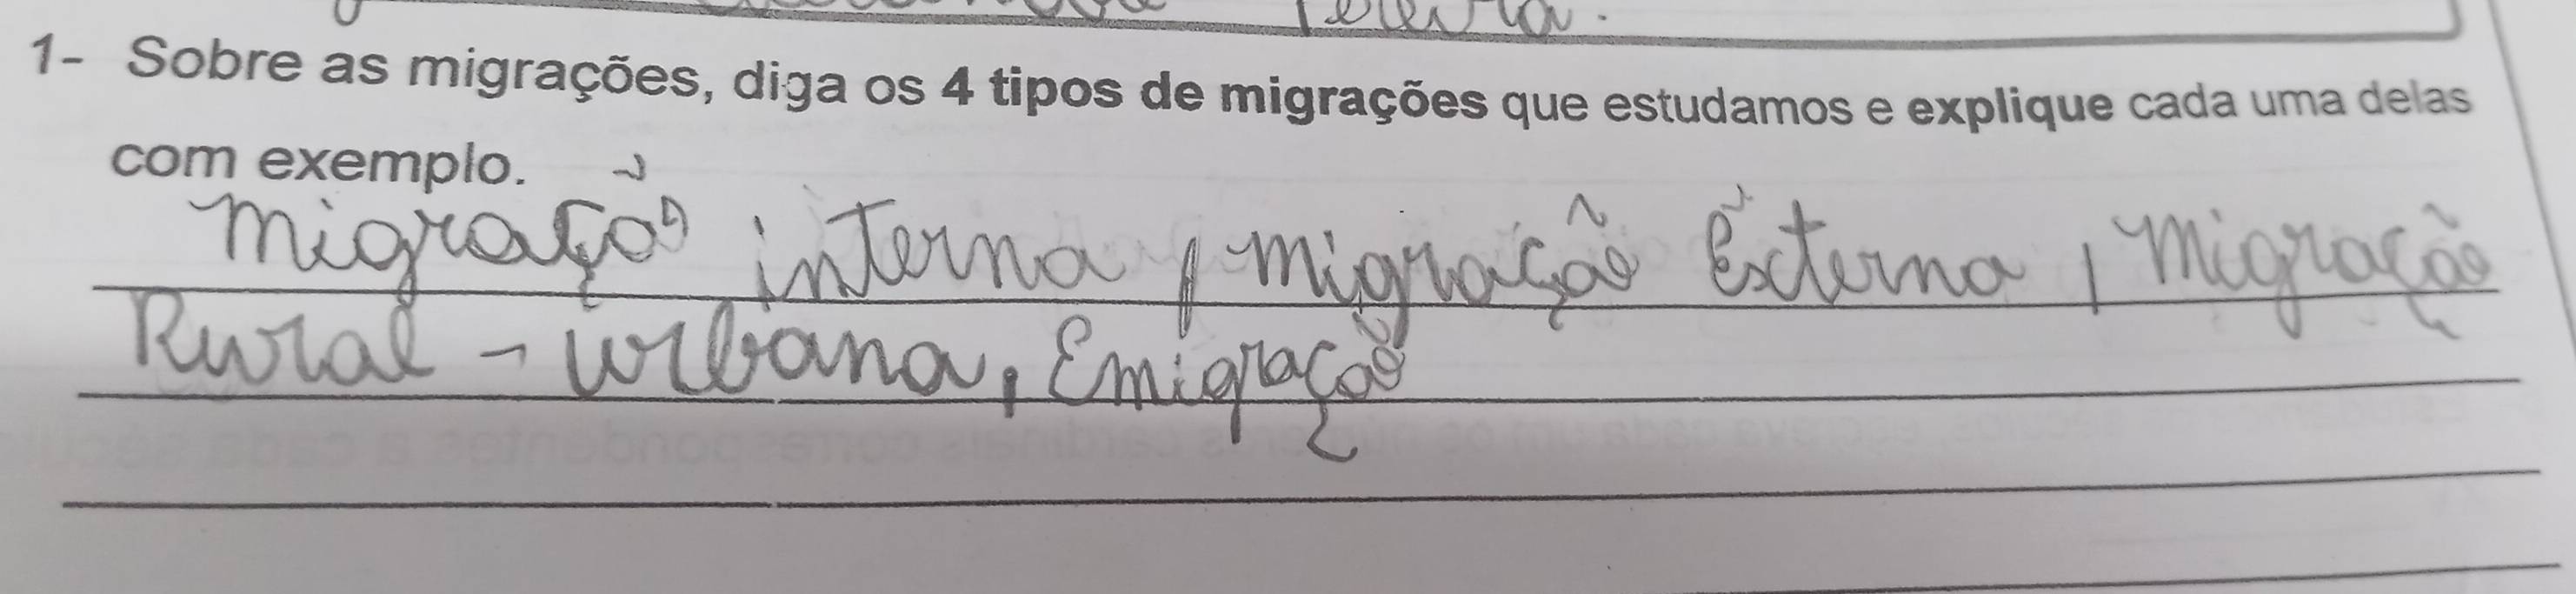 1- Sobre as migrações, diga os 4 tipos de migrações que estudamos e explique cada uma delas
com exemplo.
Migração interna, migração Externa, Migração
Rural - urbana, Emigração